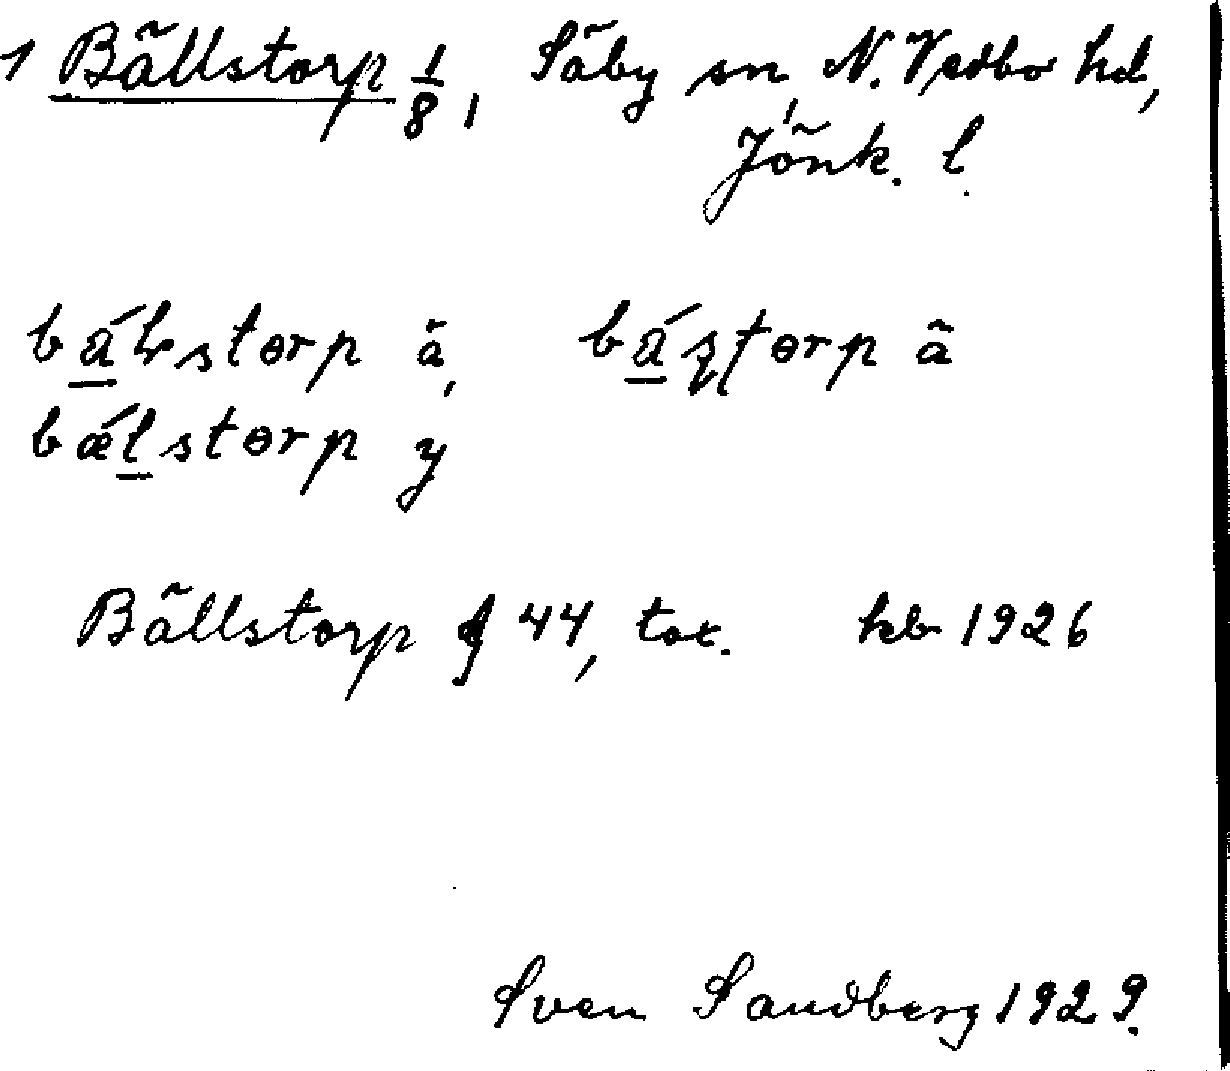 1 Bällstorp 1/8, Säby sn, N. Vedbo hd,
Jönk. l.
bálstɵrp ä, básţɵrp ä
bǽlstɵrp y
Bällstorp 44, tor. kb 1926
Sven Sandberg 1929.